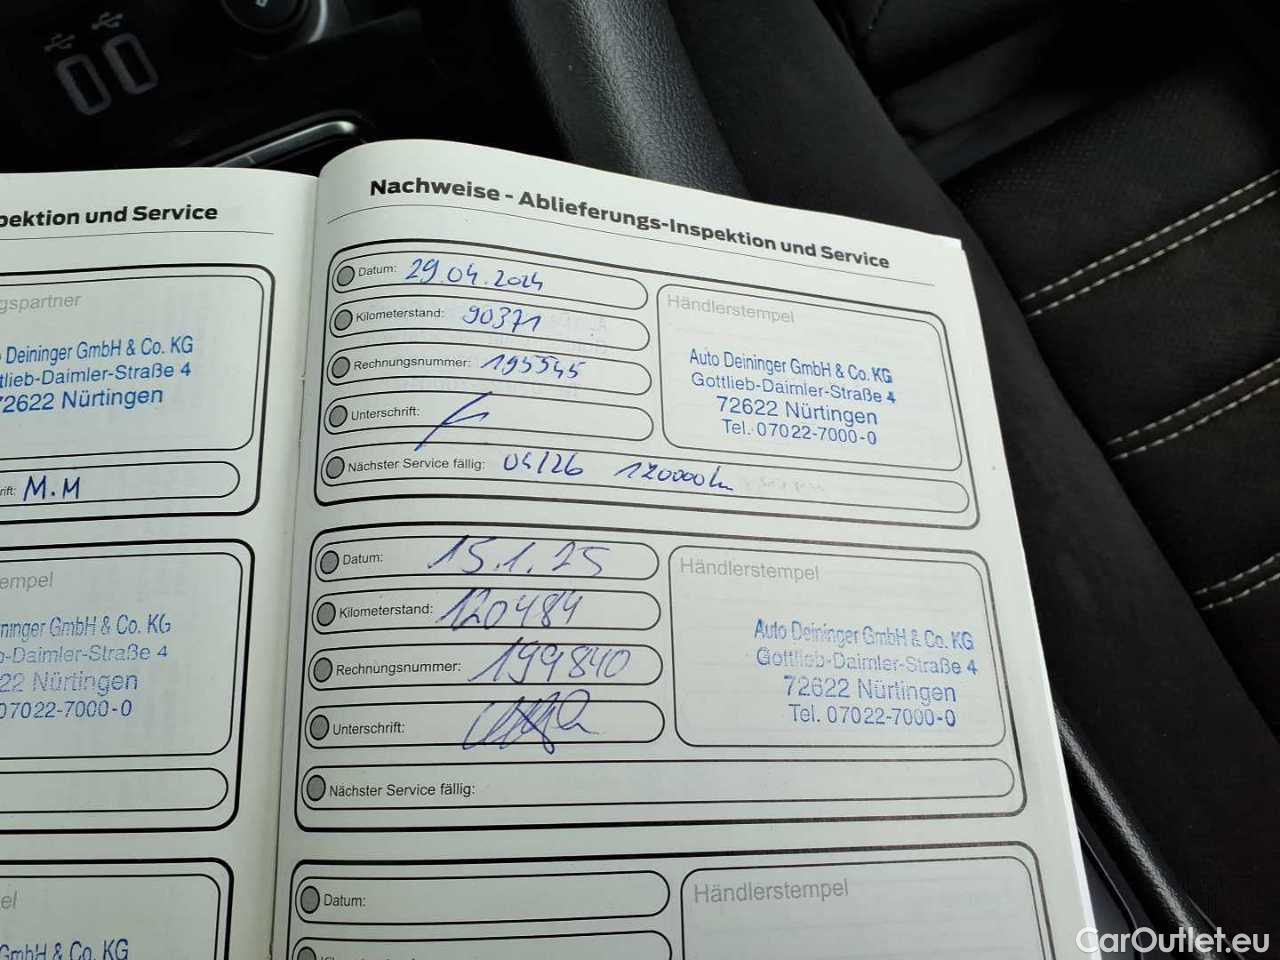 pektion und Service
gspartner
Deininger GmbH & Co. KG
tlieb-Daimler-Straße 4
72622 Nürtingen
rift: M.M
empel
ninger GmbH & Co. KG
b-Daimler-Straße 4
22 Nürtingen
07022-7000-0
el
GmbH & Co. KG
Nachweise - Ablieferungs-Inspektion und Service
Datum: 29.04.2024
Kilometerstand: 90371
Rechnungsnummer: 195545
Unterschrift:
Nächster Service fällig: 04/26 120000km
Händlerstempel
Auto Deininger GmbH & Co. KG
Gottlieb-Daimler-Straße 4
72622 Nürtingen
Tel. 07022-7000-0
Datum: 15.1.25
Kilometerstand: 120484
Rechnungsnummer: 199840
Unterschrift:
Nächster Service fällig:
Händlerstempel
Auto Deininger GmbH & Co. KG
Gottlieb-Daimler-Straße 4
72622 Nürtingen
Tel. 07022-7000-0
Datum:
Händlerstempel
CarOutlet.eu